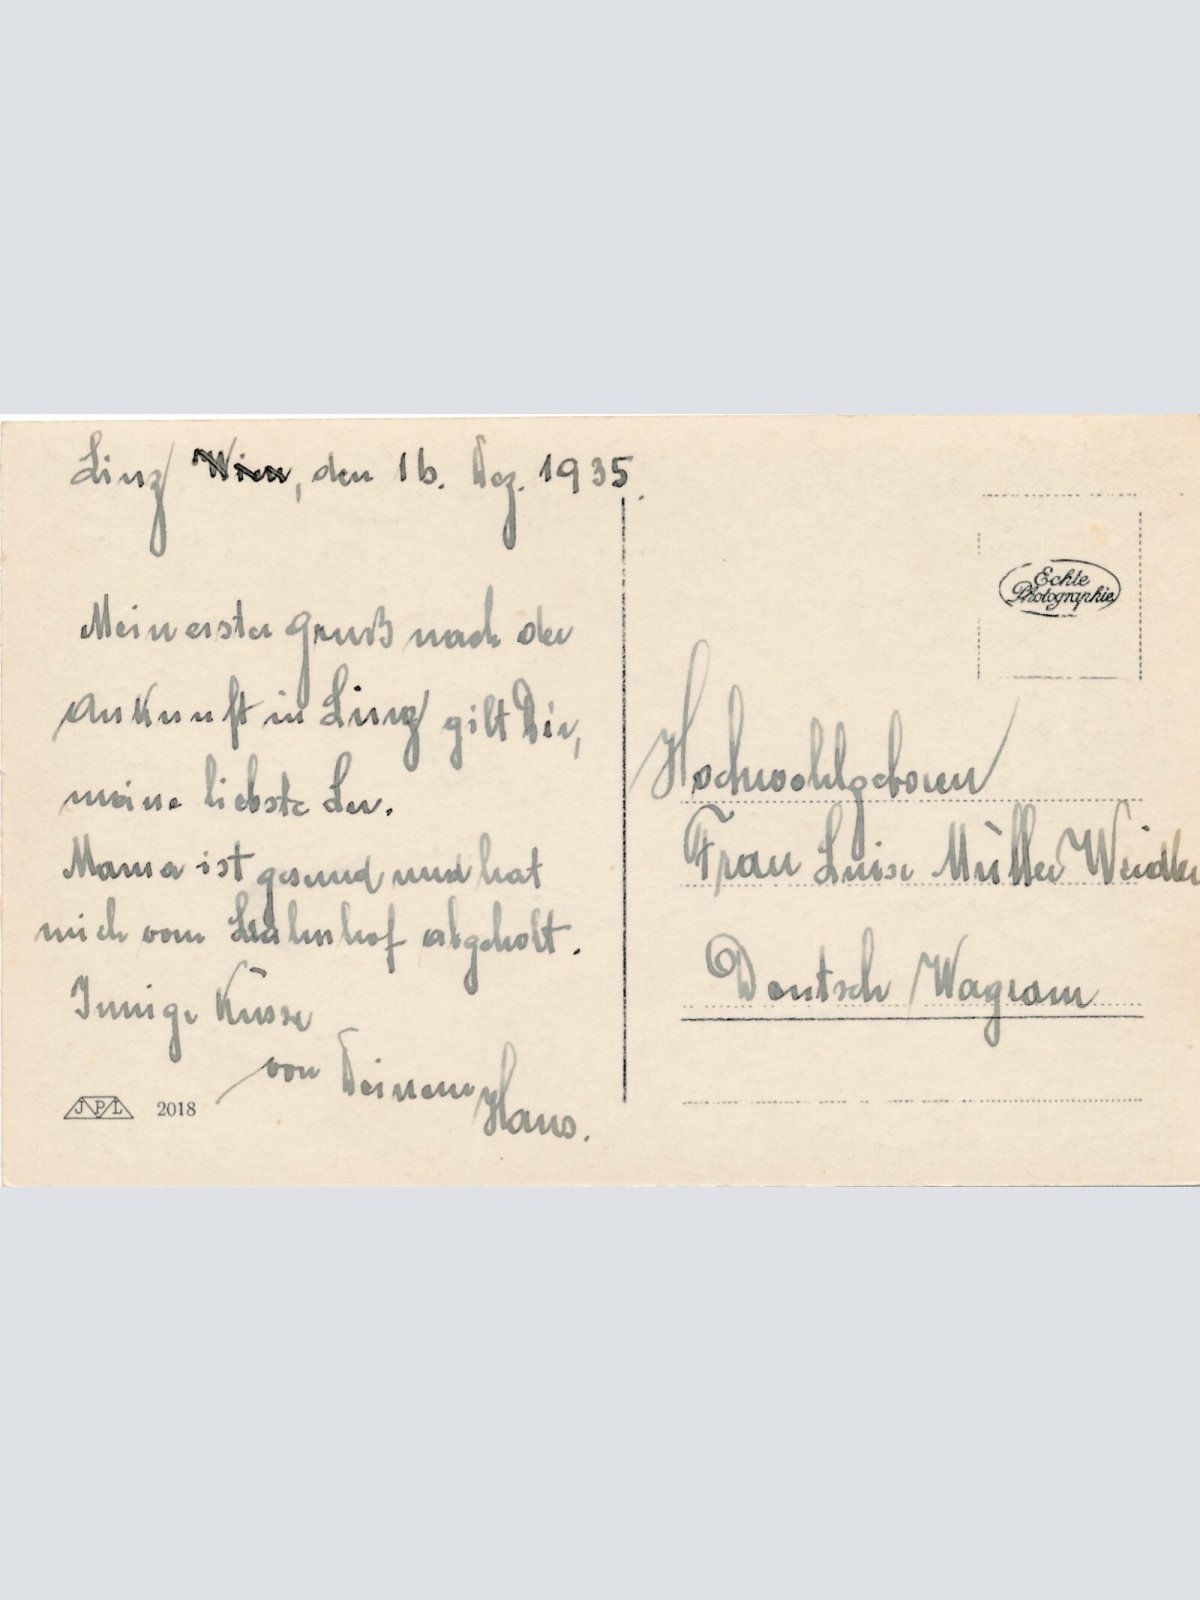 Linz Wien, den 16. Dez. 1935.
Mein erster Gruß nach der
Ankunft in Linz gilt Dir,
meine liebste Lu.
Mama ist gesund und hat
mich vom Bahnhof abgeholt.
Innige Küsse
von Deinem
Hans.
JPL 2018
Echte
Photographie
Hochwohlgeboren
Frau Luise Müller Weidler
Deutsch Wagram